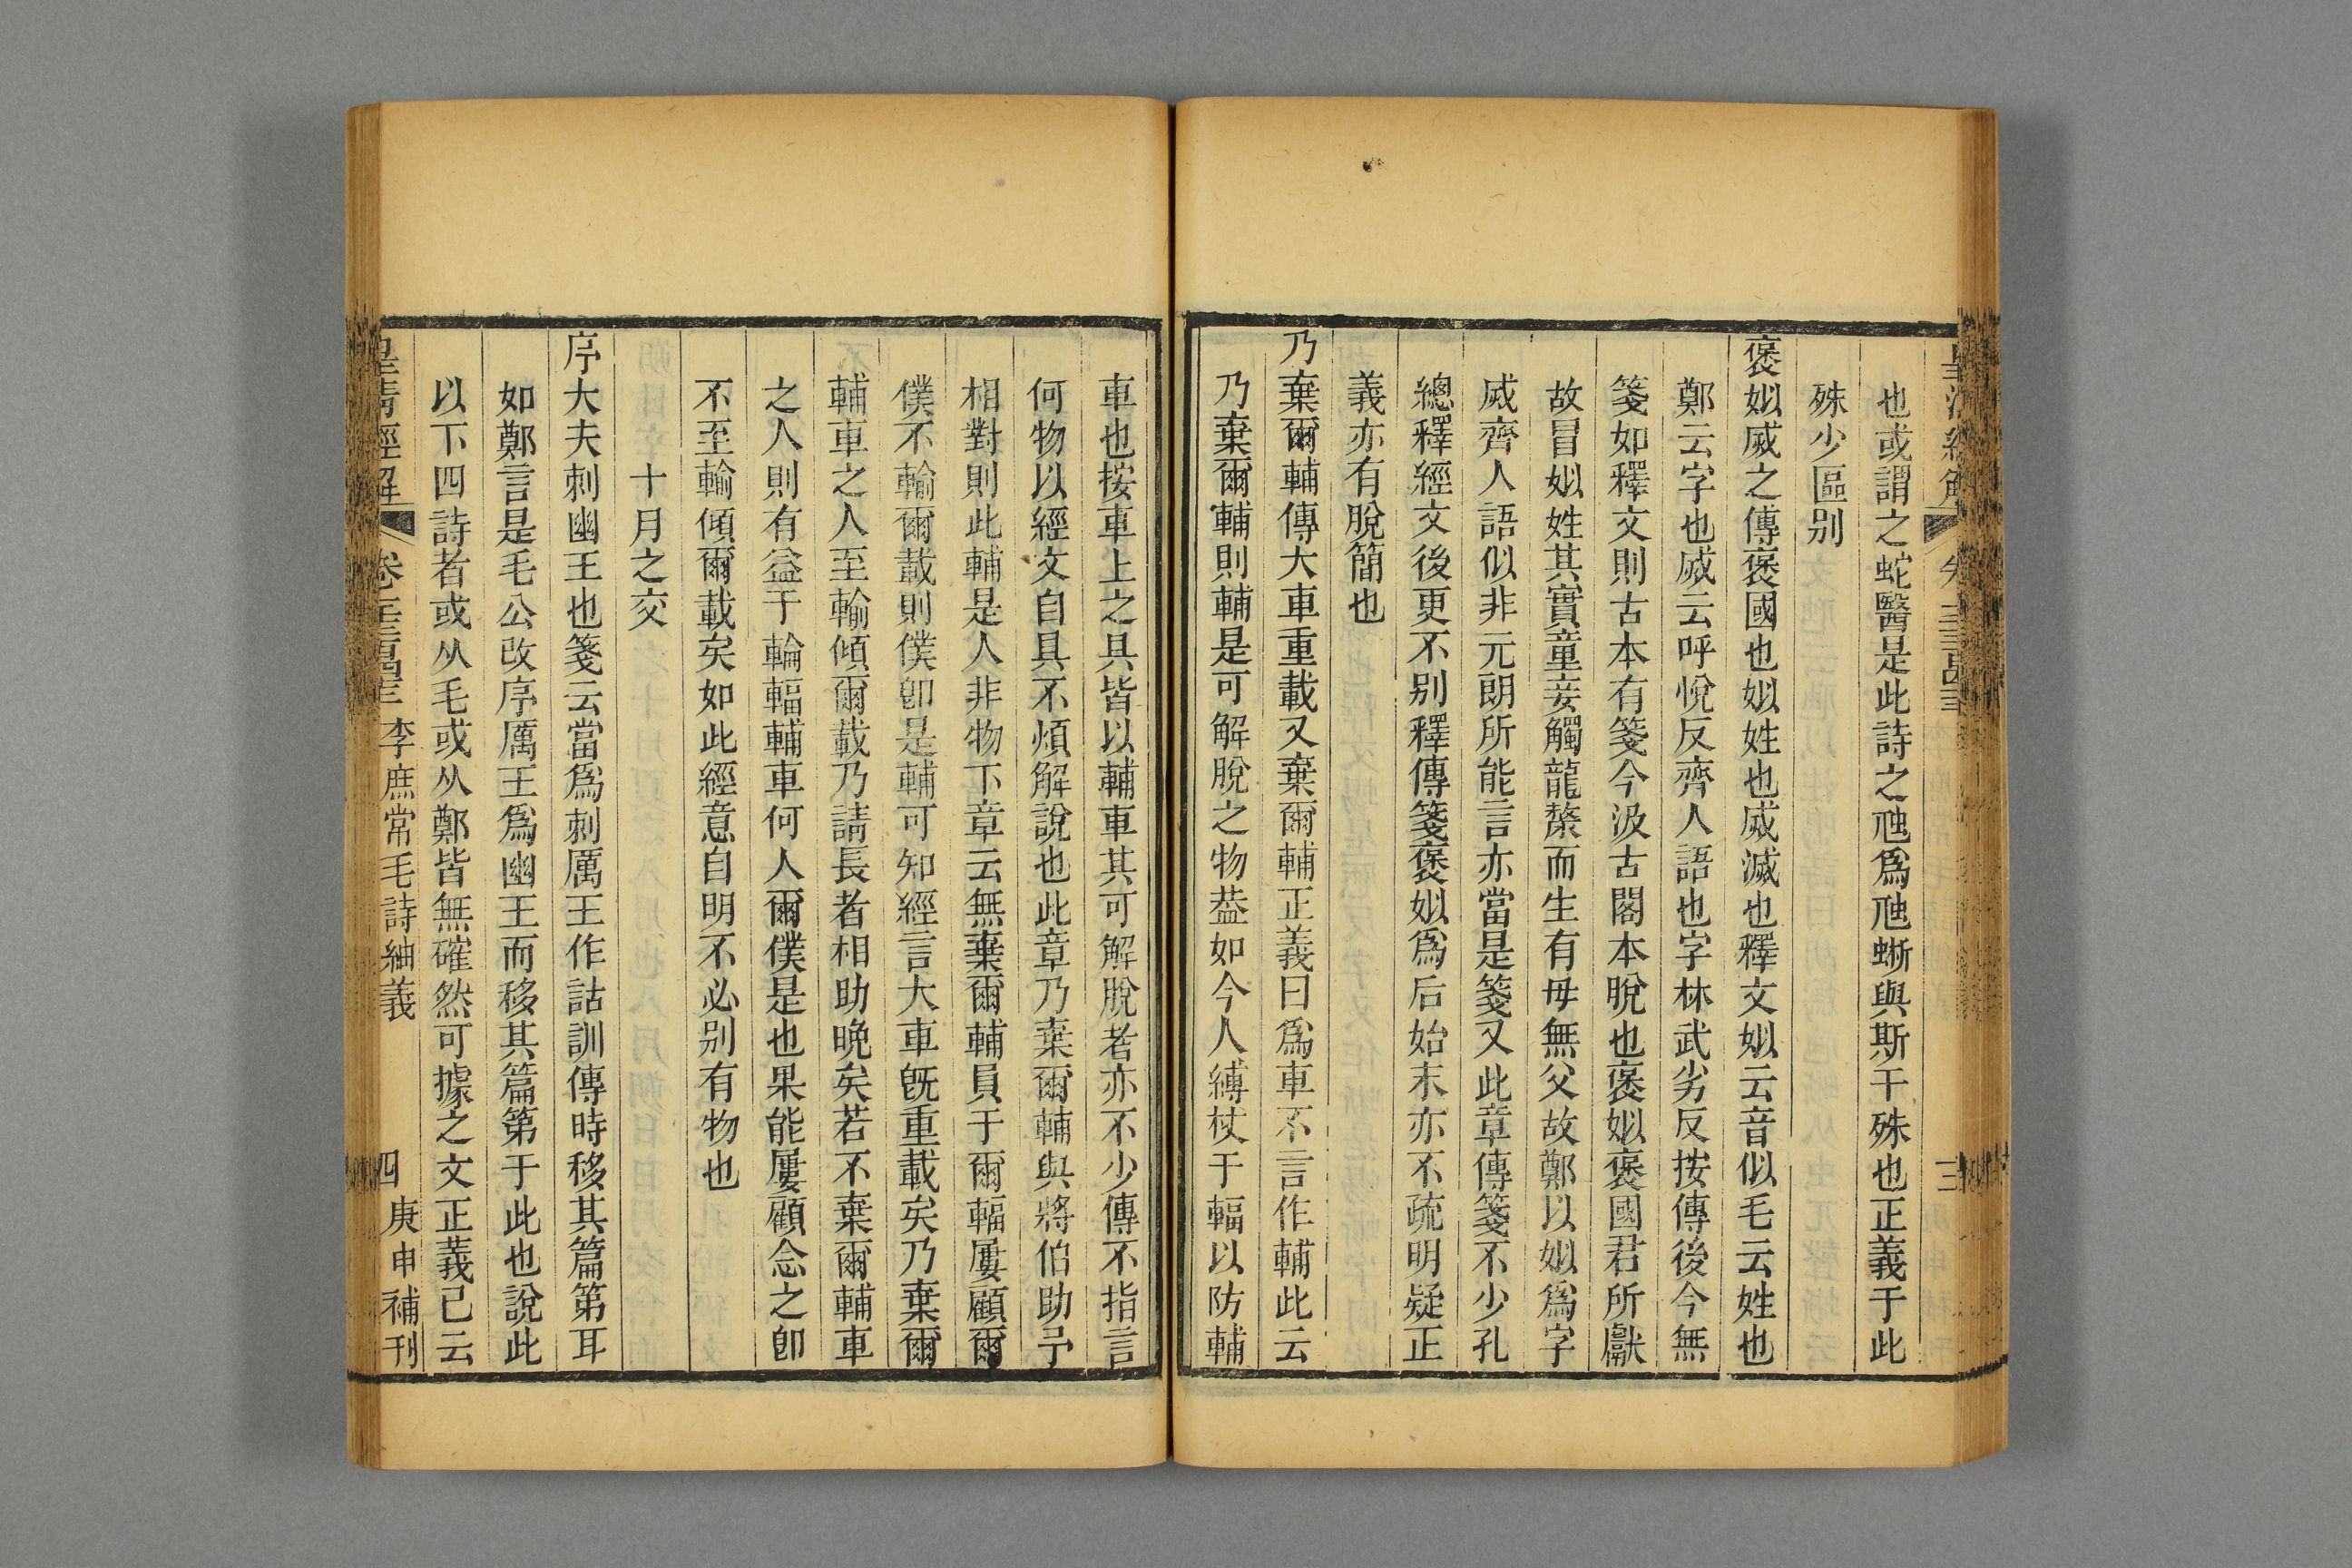 也或謂之蛇醫是此詩之虺爲虺蜥與斯干殊也正義于此
殊少區别
褒姒烕之傳褒國也姒姓也烕滅也釋文姒云音似毛云姓也
鄭云字也烕云呼悅反齊人語也字林武劣反按傳後今無
箋如釋文則古本有箋今汲古閣本脫也褒姒褒國君所獻
故冒姒姓其實童妾觸龍漦而生有母無父故鄭以姒爲字
烕齊人語似非元朗所能言亦當是箋又此章傳箋不少孔
總釋經文後更不别釋傳箋褒姒爲后始末亦不疏明疑正
義亦有脫簡也
乃棄爾輔傳大車重載又棄爾輔正義曰爲車不言作輔此云
乃棄爾輔則輔是可解脫之物葢如今人縛杖于輻以防輔
車也按車上之具皆以輔車其可解脫者亦不少傳不指言
何物以經文自具不煩解說也此章乃棄爾輔與將伯助予
相對則此輔是人非物下章云無棄爾輔員于爾輻屢顧爾
僕不輸爾載則僕卽是輔可知經言大車旣重載矣乃棄爾
輔車之人至輸傾爾載乃請長者相助晩矣若不棄爾輔車
之人則有益于輪輻輔車何人爾僕是也果能屢顧念之卽
不至輸傾爾載矣如此經意自明不必别有物也
十月之交
序大夫刺幽王也箋云當爲刺厲王作詁訓傳時移其篇第耳
如鄭言是毛公改序厲王爲幽王而移其篇第于此也說此
以下四詩者或从毛或从鄭皆無確然可據之文正義已云
皇清經解
李庶常毛詩紬義
四
庚申補刊